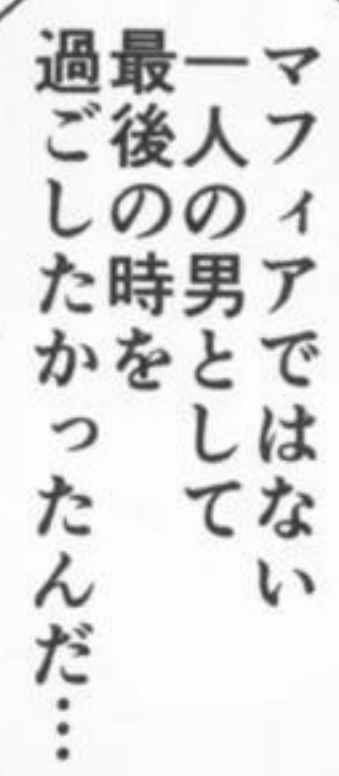 マフィアではない
一人の男として
最後の時を
過ごしたかったんだ…